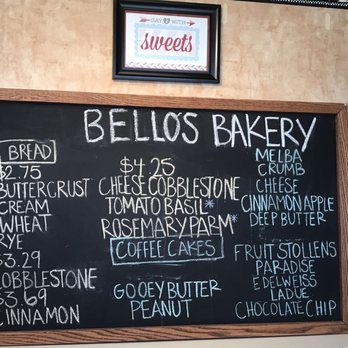 SAY IT WITH
sweets
BELLOS BAKERY
BREAD
$2.75
BUTTERCRUST
CREAM
WHEAT
RYE
$3.29
COBBLESTONE
$3.69
CINNAMON
$4.25
CHEESE COBBLESTONE
TOMATO BASIL*
ROSEMARY PARM*
COFFEE CAKES
GOOEY BUTTER
PEANUT
MELBA
CRUMB
CHEESE
CINNAMON APPLE
DEEP BUTTER
FRUIT STOLLENS
PARADISE
EDELWEISS
LADUE
CHOCOLATE CHIP